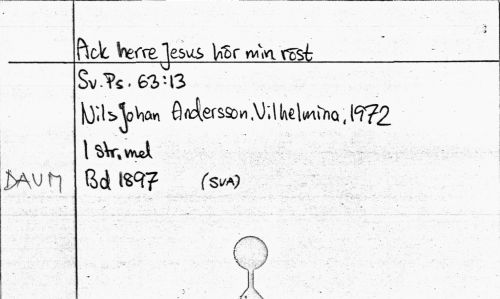 Ack herre Jesus hör min röst
Sv. Ps. 63:13
Nils Johan Andersson, Vilhelmina, 1972
1 str, mel
DAUM Bd 1897 (SVA)